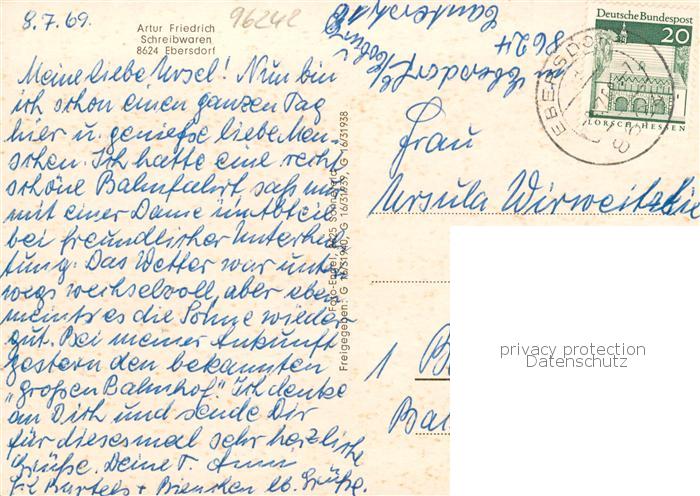 8.7.69.
96242
Artur Friedrich
Schreibwaren
8624 Ebersdorf
Meine liebe Ursel! Nun bin
ich schon einen ganzen Tag
hier u. genieße liebe Men-
schen. Ich hatte eine recht
schöne Bahnfahrt saß nur
mit einer Dame im Abteil
bei freundlicher Unterhal
tung. Das Wetter war unter
wegs wechselvoll aber
meint es die Sonne wieder
gut. Bei meiner Ankunft
gestern den bekannten
"großen Bahnhof." Ich denke
an Dich und sende Dir
für diesesmal sehr herzliche
Grüße. Deine T. Anni
Bartels + lb. Grüße.
Foto-Engel, 8625 Sonnefeld
Freigegeben: G 16/31940, G 16/31939, G 16/31938
8624
Ebersdorf
b/ Coburg
Deutsche Bundespost
20
LORSCH·HESSEN
EBERSDORF
Frau
Ursula
1 B
Ba
privacy protection
Datenschutz